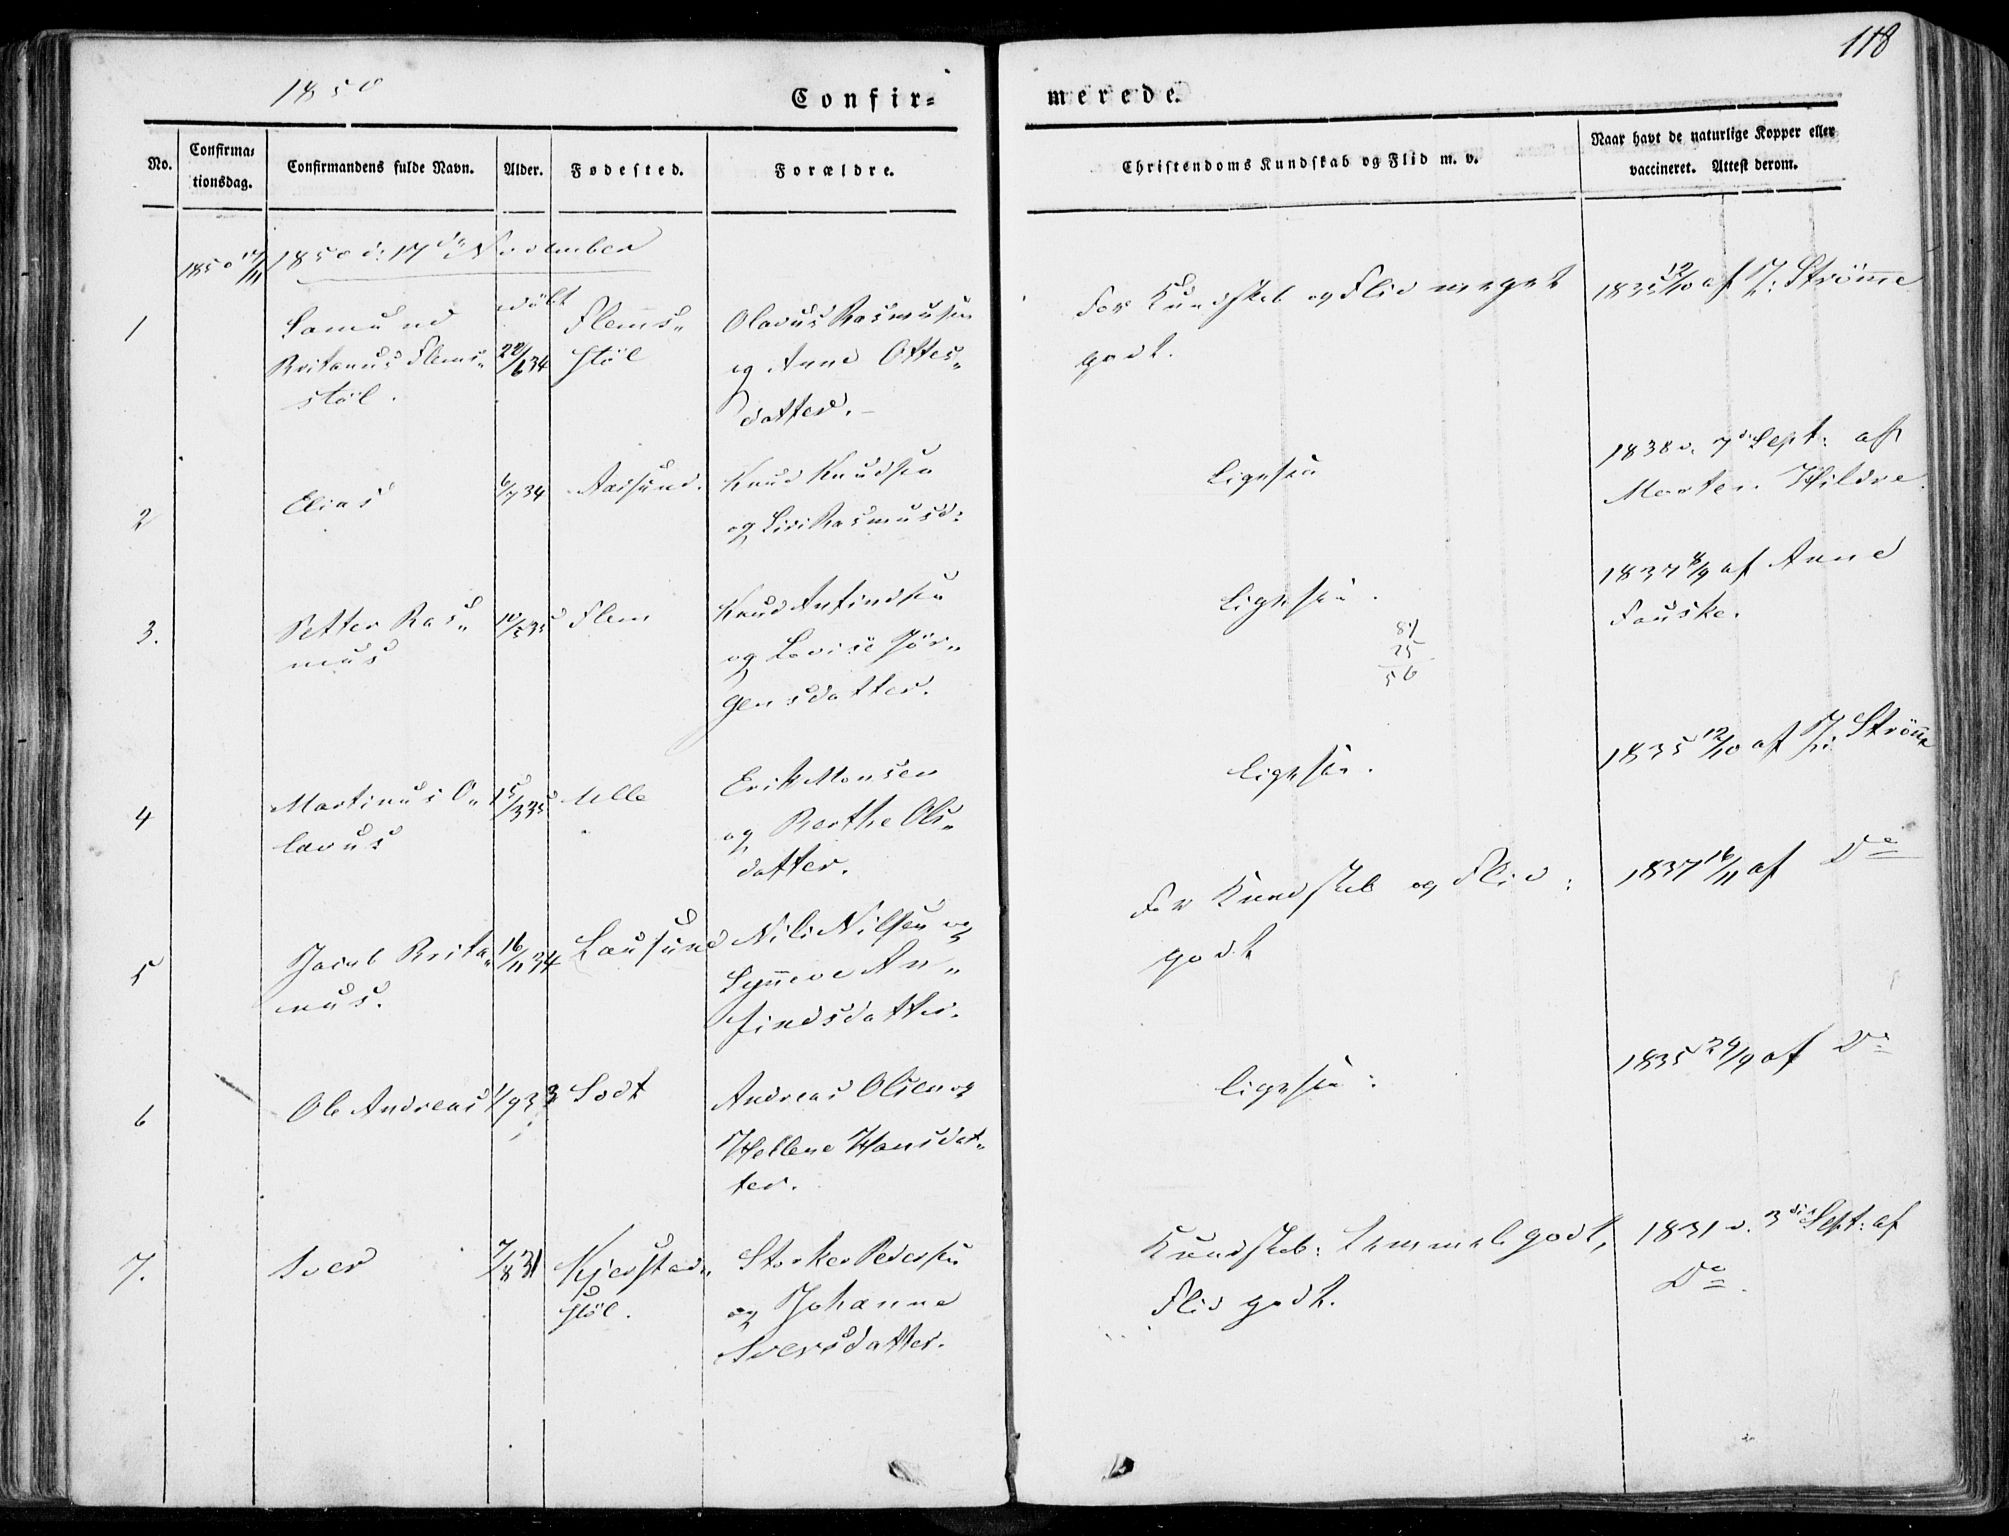 118
1850
Confir-
merede.
No.
Confirma-
tionsdag.
Confirmandens fulde Navn.
Alder.
Fødested.
Forældre.
Christendoms Kundskab og Flid m. v.
Naar havt de naturlige Kopper eller
vaccineret. Attest derom.
1850 17/11 1850 d: 17de November
1
Samund
Britanus Flems-
støl.
døbt
22/6 34
Flems-
støl
Olavus Rasmusen
og Anne Ottes-
datter.
For Kundskab og Flid meget
godt.
1835 12/10 af H: Strømme
2
Elias
6/7 34
Aarsund.
Knud Knudsen
og Siri Rasmusd:
Ligesaa
1838 d. 7de Sept: af
Morten Hildre.
3.
Petter Ras-
mus
10/5 35
Flem
Knud Anfindsen
og Lovise Jør-
gensdatter.
Ligesaa.
81
25
56
1837 8/9 af Anne
Fauske.
4
Martinus O-
lavus
15/3 35
Ulle
Erik Monsen
og Berthe Ols-
datter.
Ligesaa.
1835 12/10 af H: Strømme
5
Jacob Brita-
nus.
16/11 34
Lausund
Nils Nilsen og
Synneve An-
findsdatter.
For Kundskab og Flid:
godt
1837 16/11 af Do
6
Ole Andreas
1/9 33
Sodt
Andreas Olsen og
Hellene Hansdat-
ter.
Ligesaa:
1835 29/9 af Do
7.
Iver
7/8 31
Kjerstad-
støl.
Storker Pedersen
og Johanne
Iversdatter.
Kundskab: temmel. godt,
Flid godt.
1831 d. 3die Sept: af
Do.